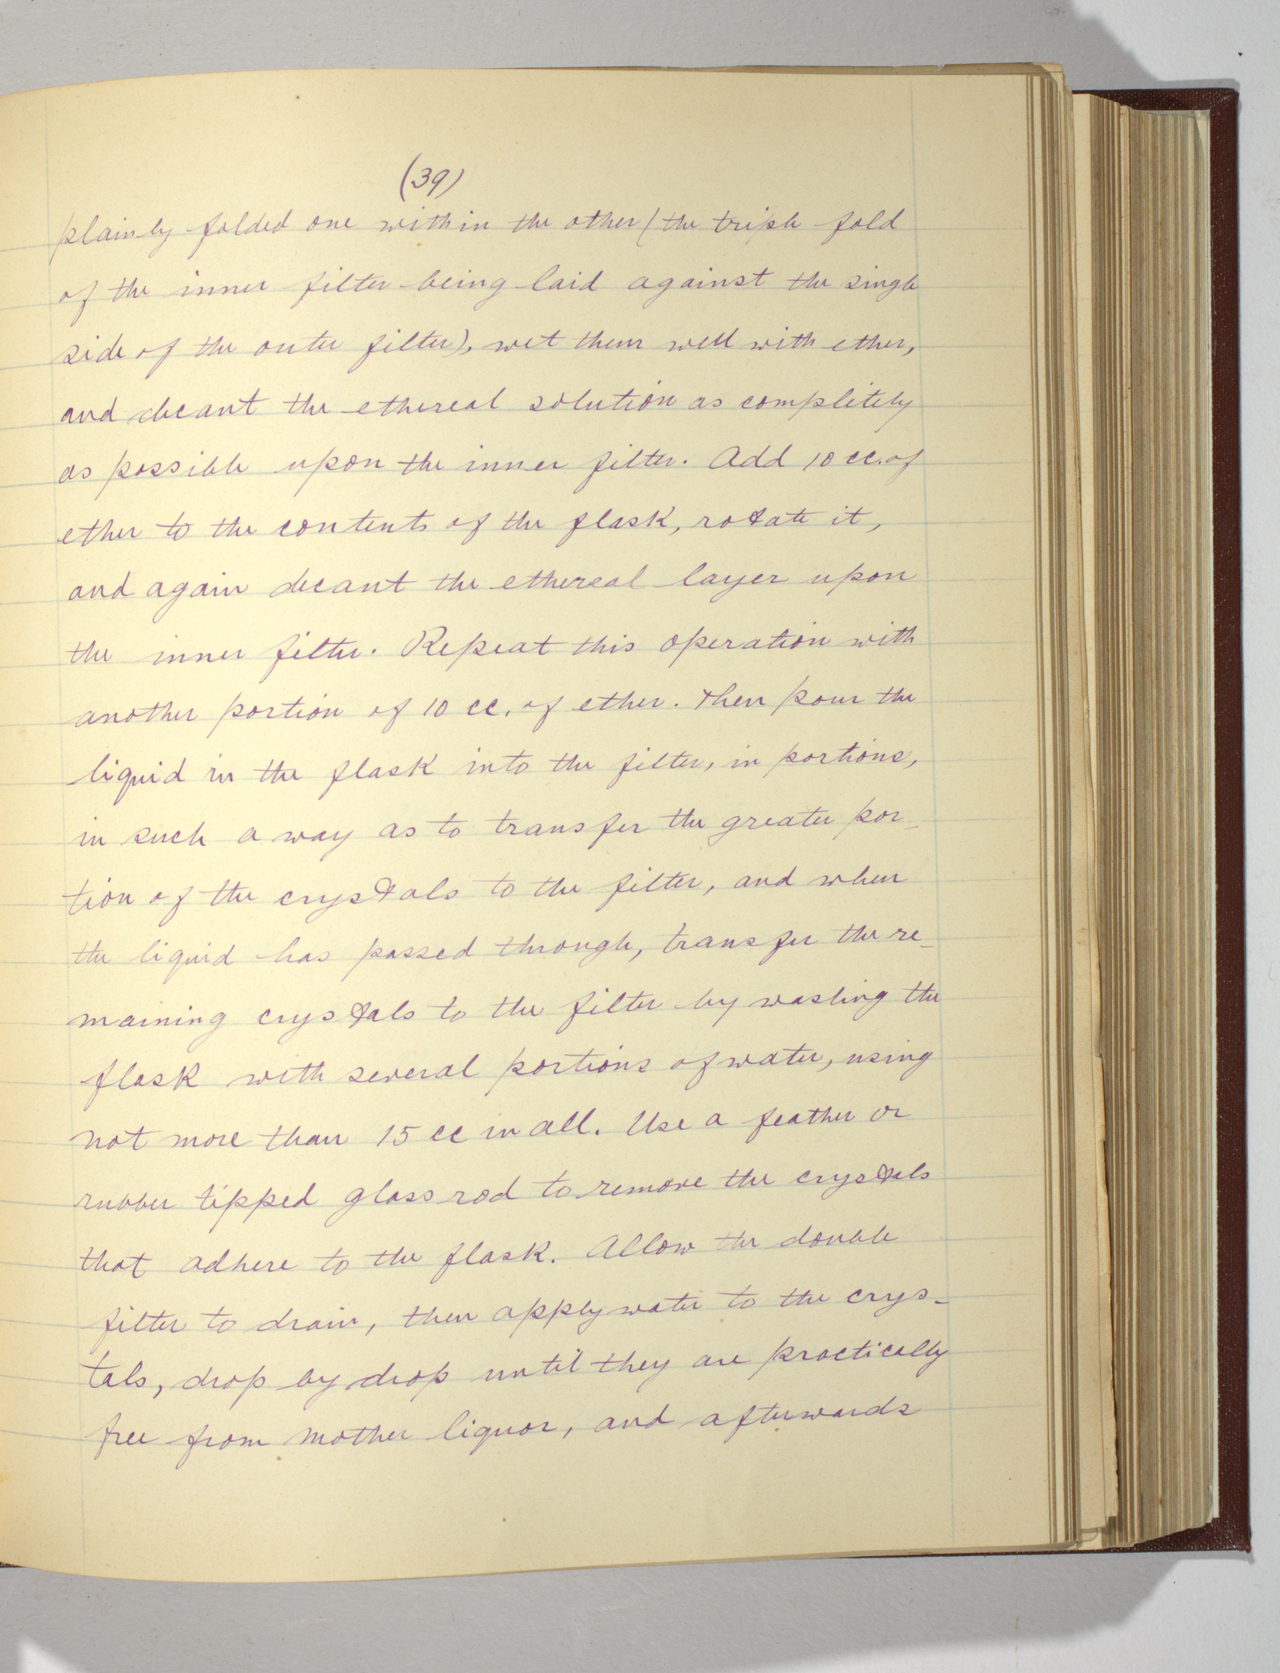 (39)
plainly folded one within the other (the triple fold
of the inner filter being laid against the single
side of the outer filter), wet them well with ether,
and decant the ethereal solution as completely
as possible upon the inner filter. Add 10 cc. of
ether to the contents of the flask, rotate it,
and again decant the ethereal layer upon
the inner filter. Repeat this operation with
another portion of 10 cc. of ether. Then pour the
liquid in the flask into the filter, in portions,
in such a way as to transfer the greater por-
tion of the crystals to the filter, and when
the liquid has passed through, transfer the re-
maining crystals to the filter by washing the
flask with several portions of water, using
not more than 15 cc in all. Use a feather or
rubber tipped glass rod to remove the crystals
that adhere to the flask. Allow the double
filter to drain, then apply water to the crys-
tals, drop by drop until they are practically
free from mother liquor, and afterwards